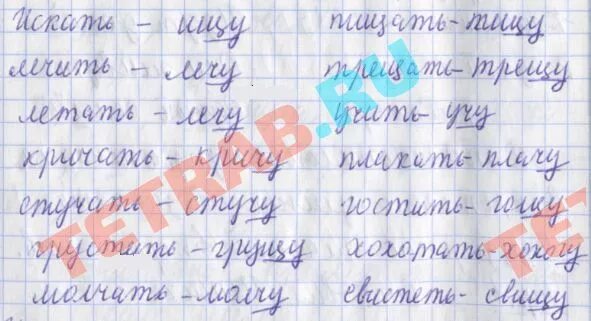 Искать – ищу пищать – пищу
лечить – лечу трещать – трещу
летать – лечу учить – учу
кричать – кричу плакать – плачу
стучать – стучу гостить – гощу
грустить – грущу хохотать – хохочу
молчать – молчу свистеть – свищу
TETRAB.RU